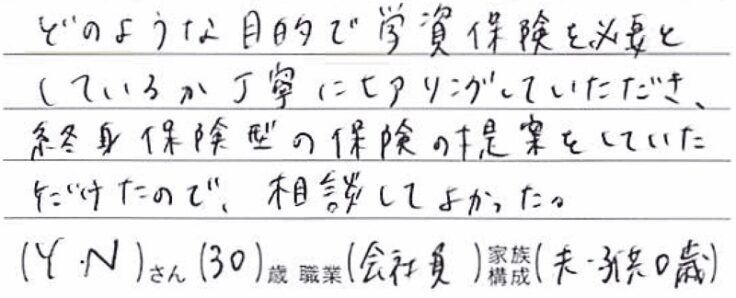 どのような目的で学資保険を必要と
しているか丁寧にヒアリングしていただき、
終身保険型の保険の提案をしていた
だけたので、相談してよかった。
(Y.N)さん(30)歳 職業(会社員)家族構成(夫・子供0歳)